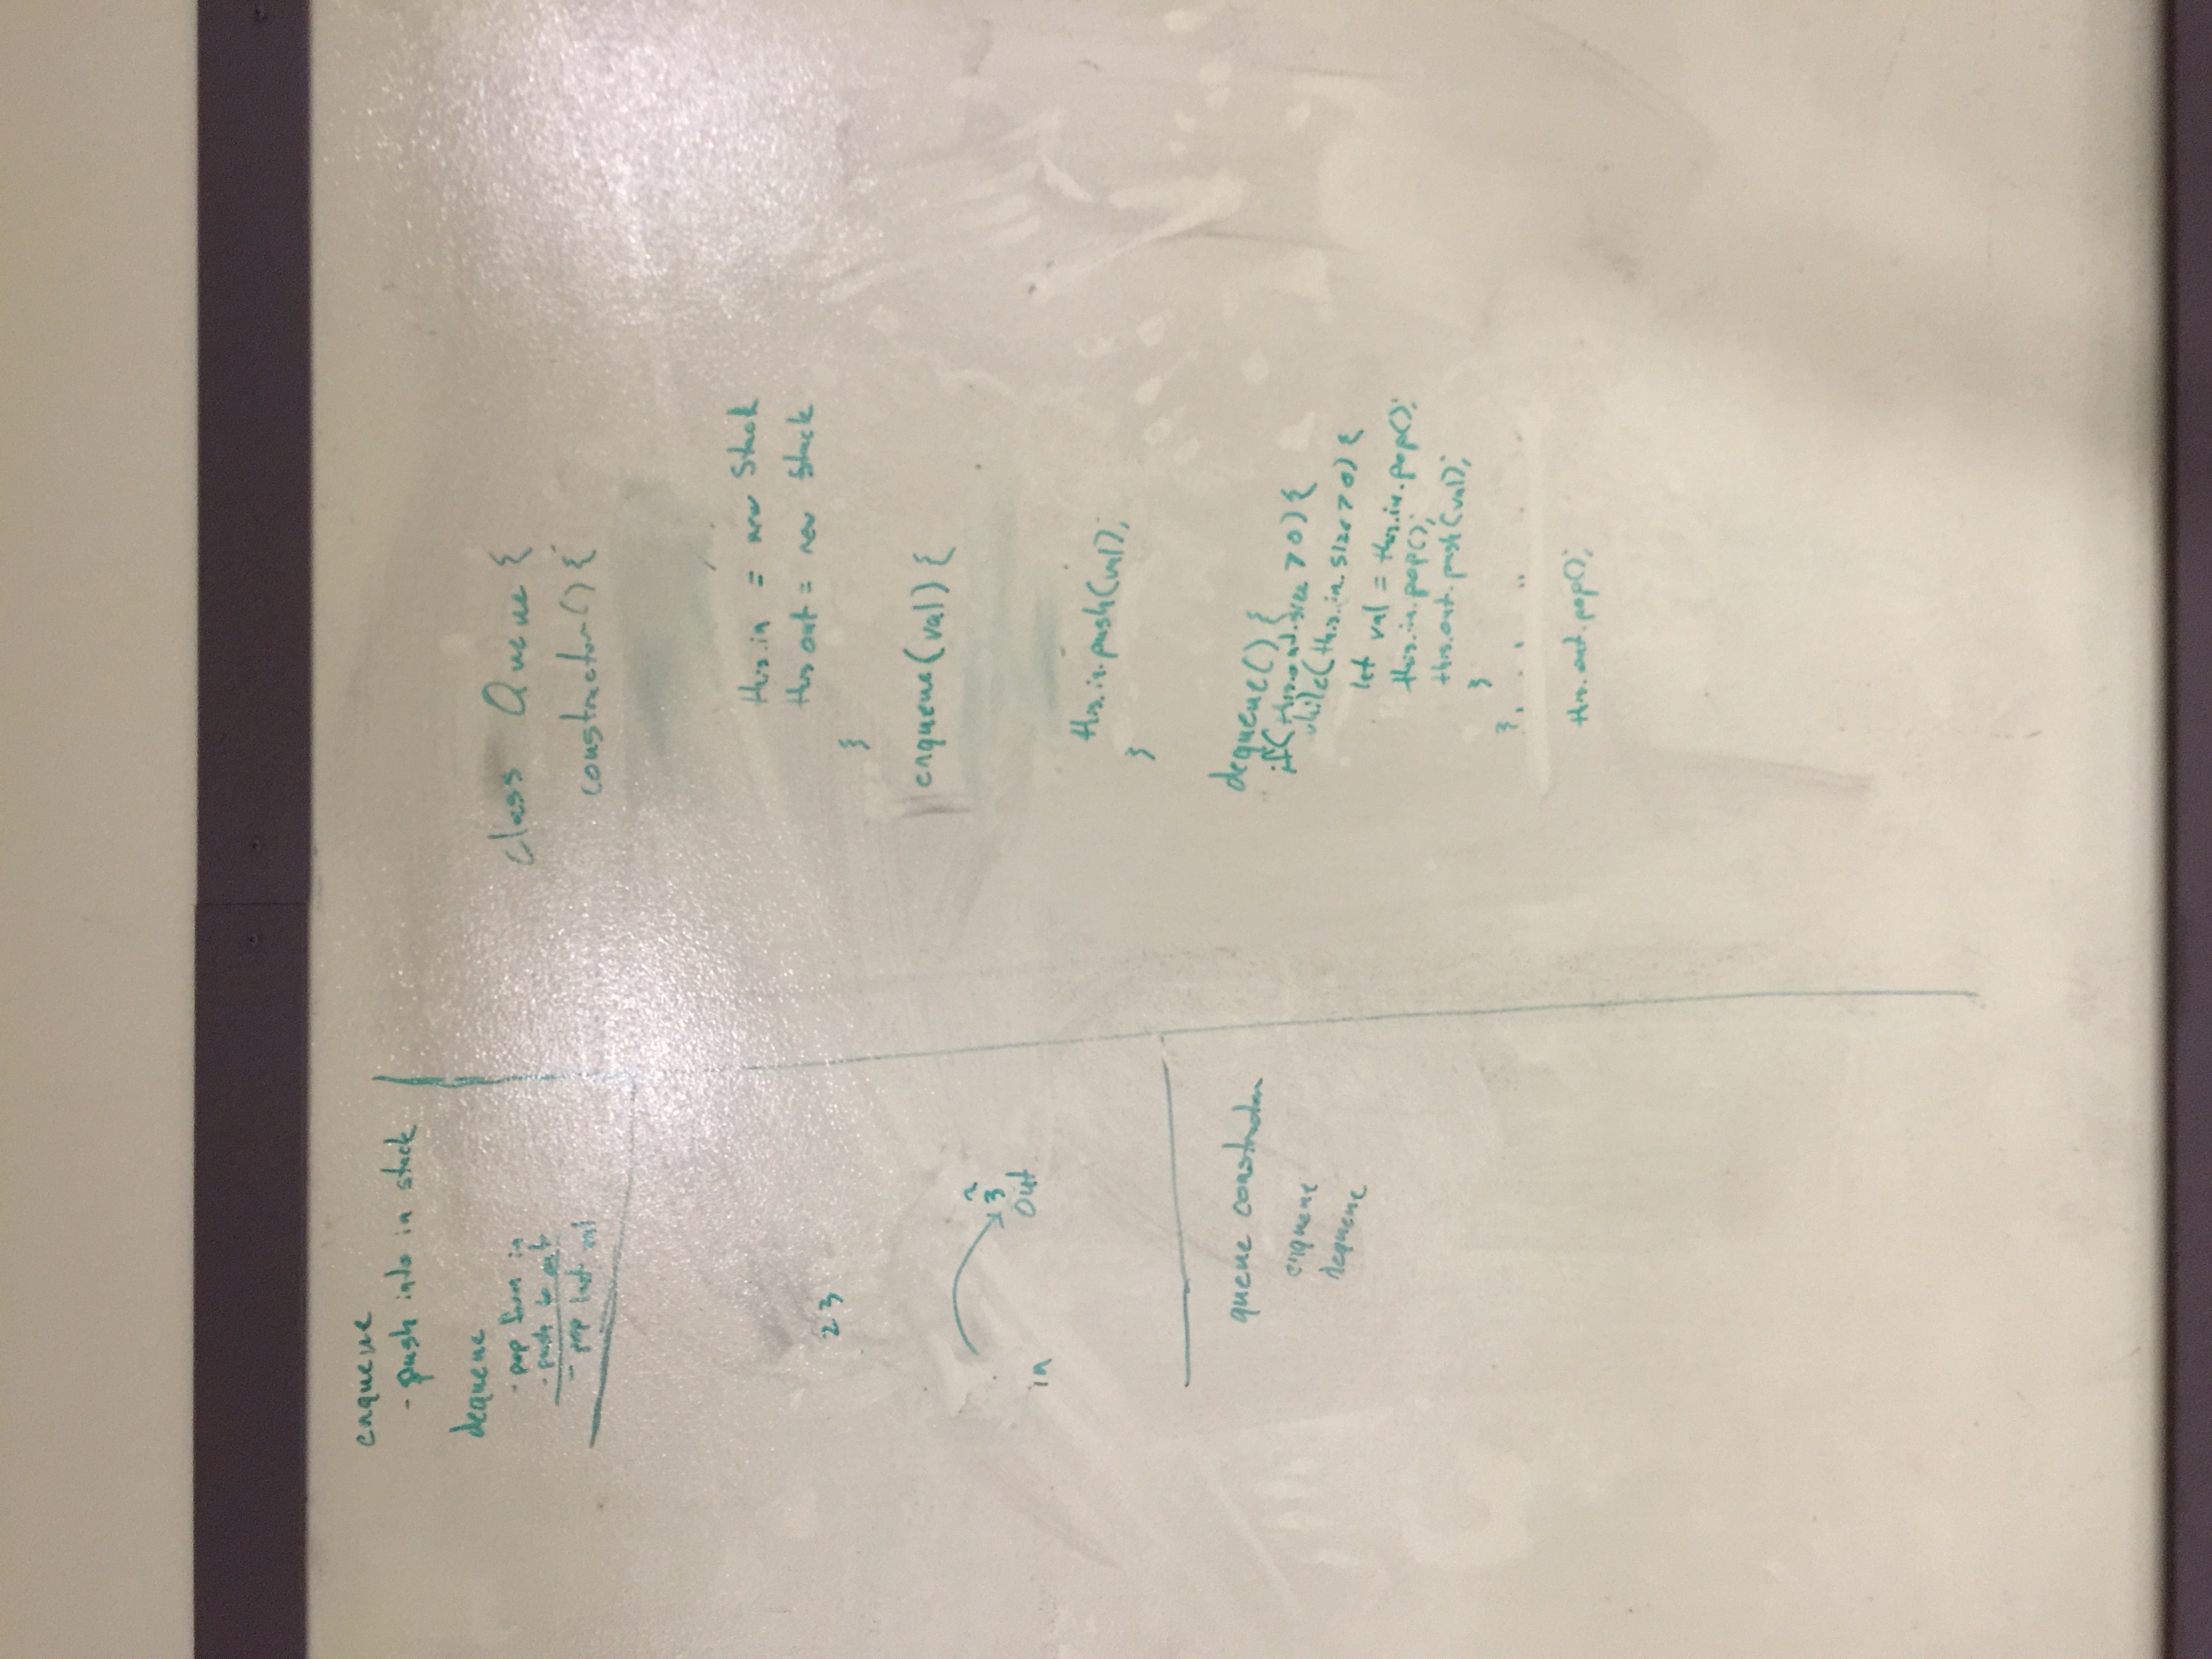 enqueue
- push into in stack
dequeue
- pop from in
- push to out
- pop last val
2 3
2
3
in
out
queue constructor
enqueue
dequeue
class Queue {
constructor() {
this.in = new Stack
this.out = new Stack
}
enqueue(val) {
this.in.push(val);
}
dequeue() {
if(this.out.size > 0) {
while(this.in.size > 0) {
let val = this.in.pop();
this.in.pop();
this.out.push(val);
}
}
this.out.pop();